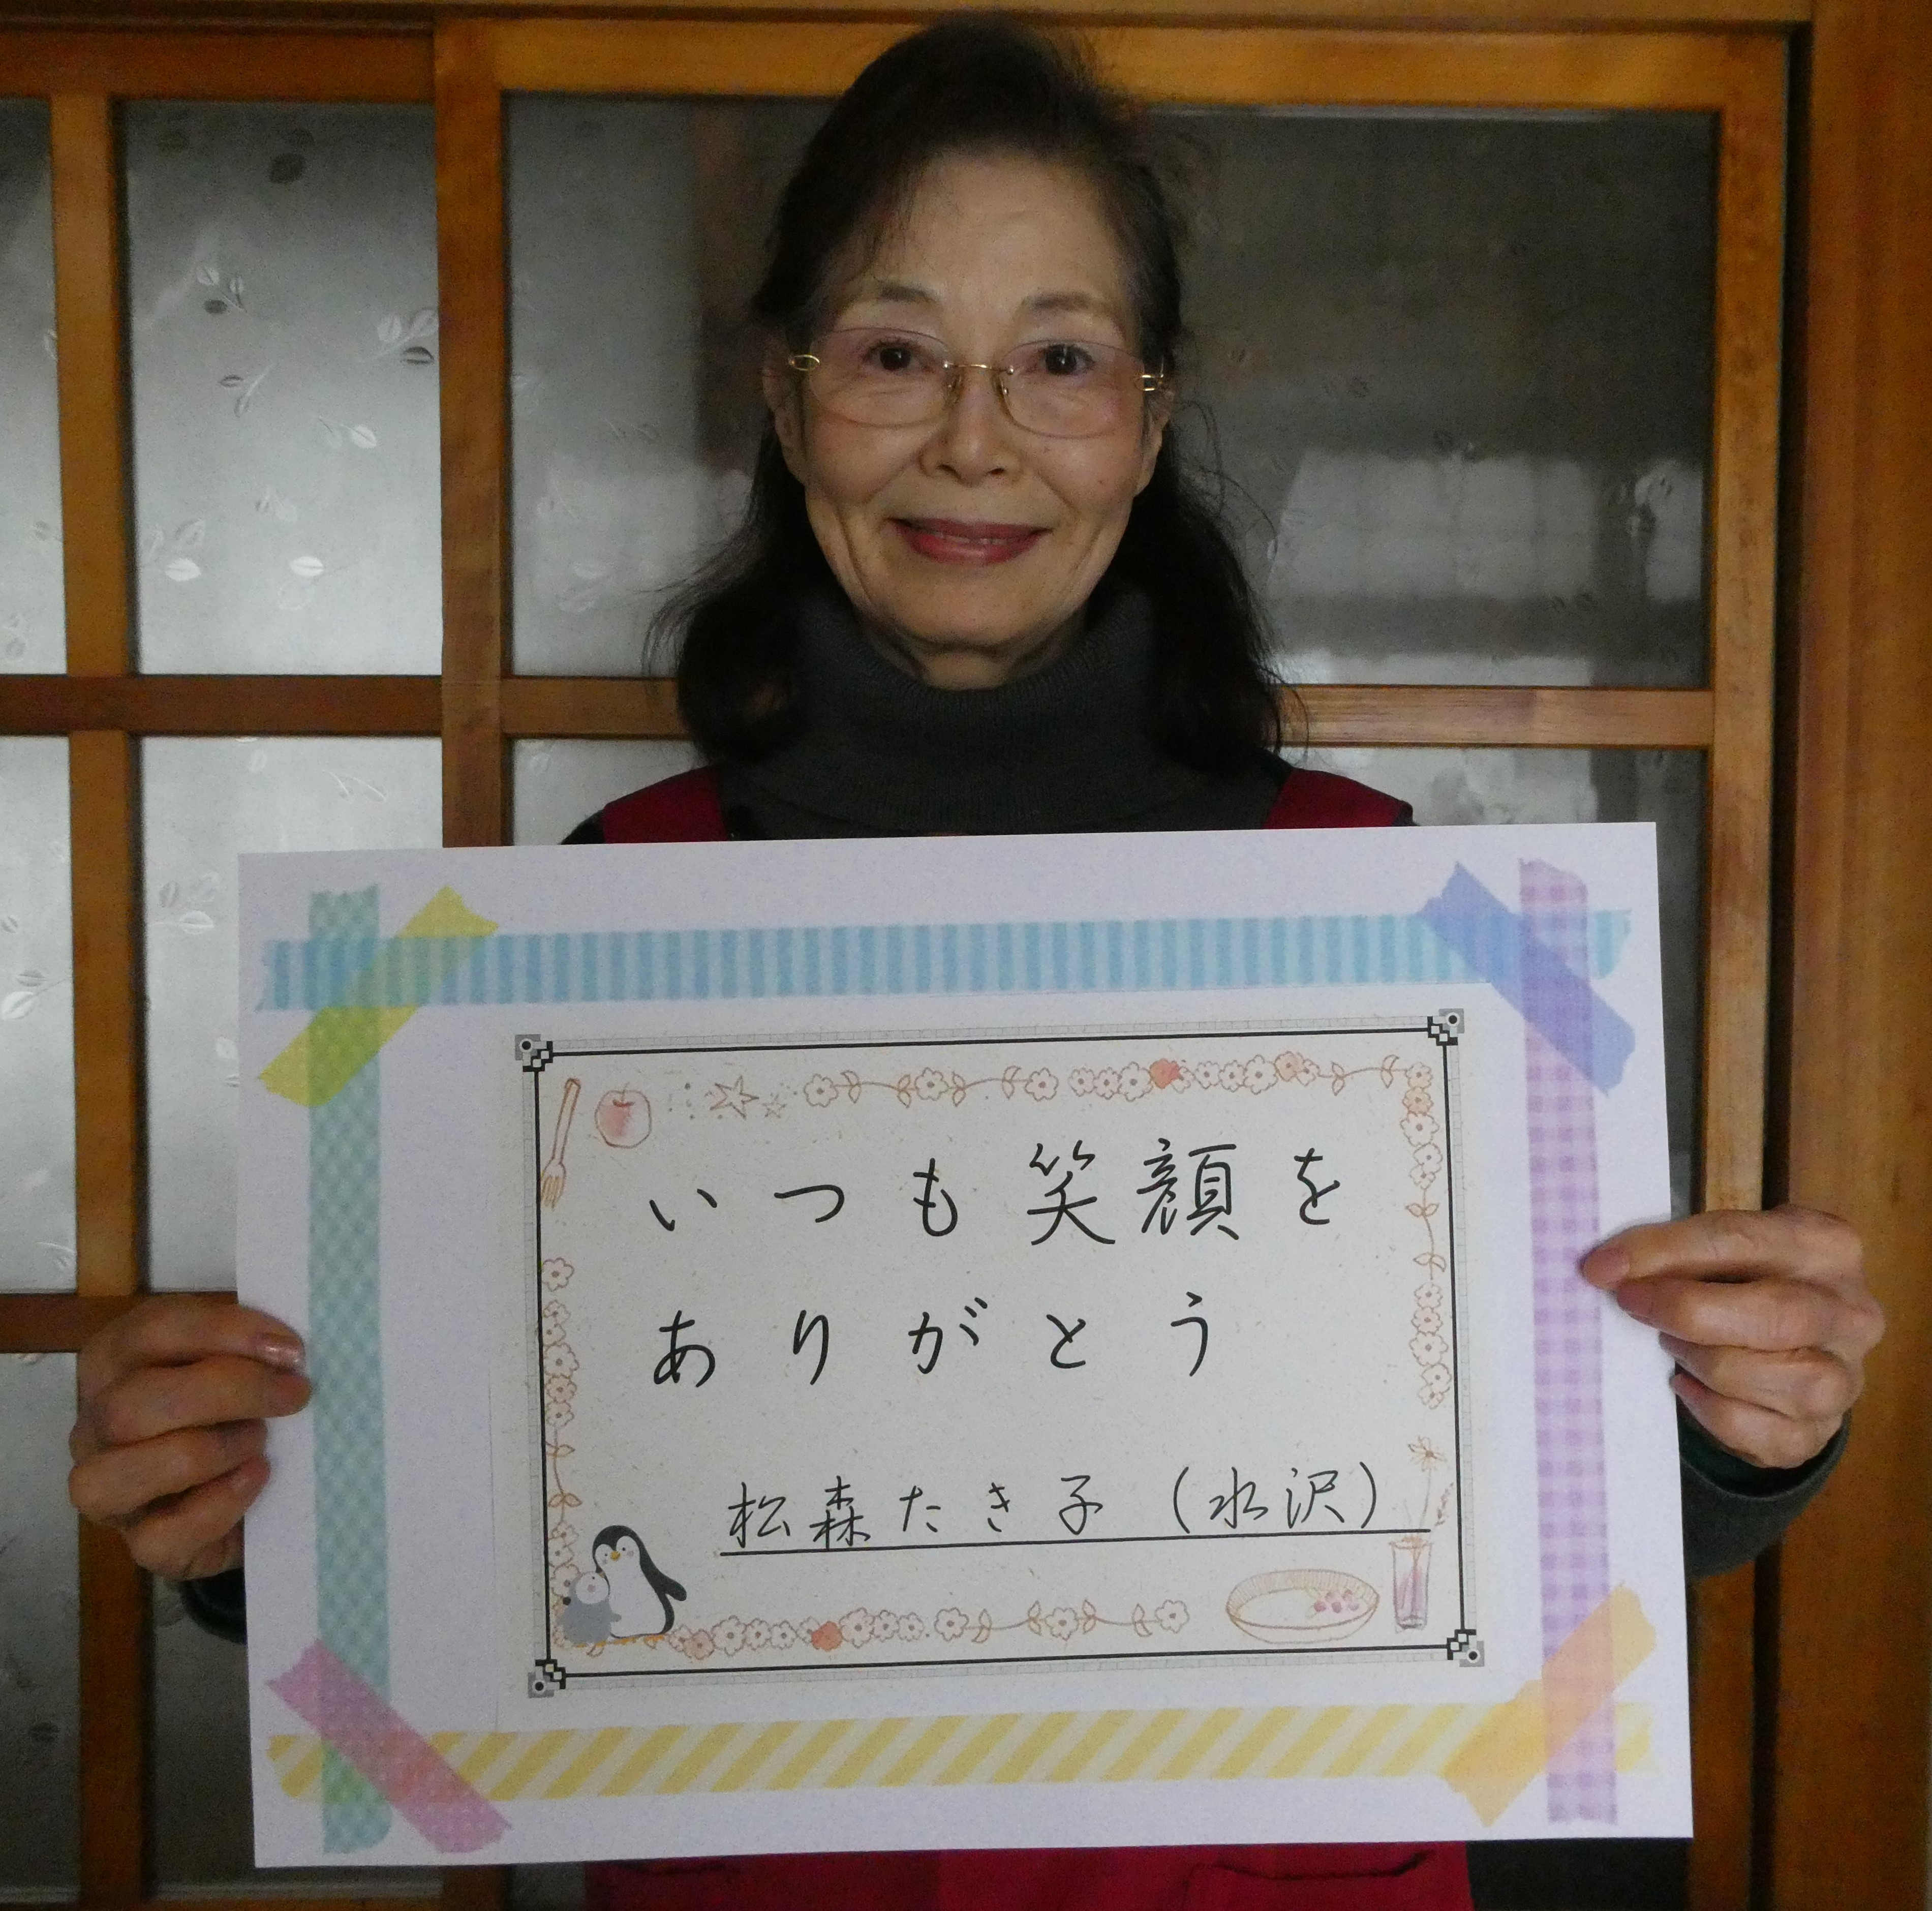 いつも笑顔を
ありがとう
松森たき子(水沢)